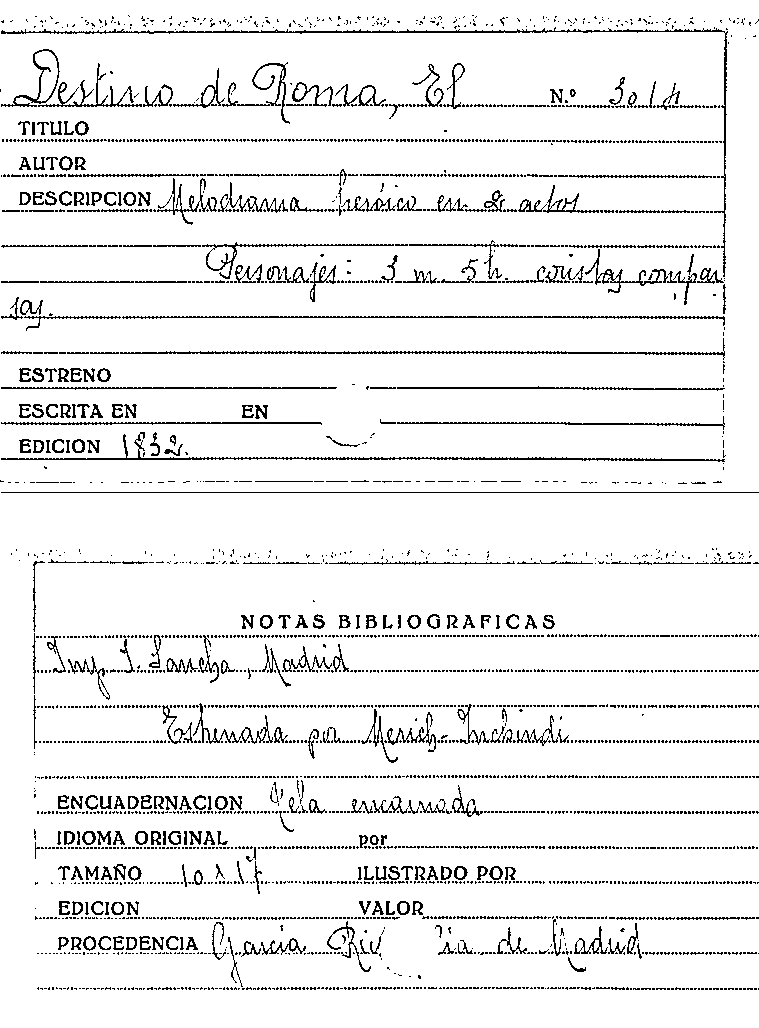 Destino de Roma, El N.º 3014
TITULO
AUTOR
DESCRIPCION Melodrama heróico en 2 actos
Personajes: 3 m. 5 h. coristas compar
sas.
ESTRENO
ESCRITA EN EN
EDICION 1832.
NOTAS BIBLIOGRAFICAS
Imp. I. Sancha, Madrid
Estrenada por Merich-Inchindi
ENCUADERNACION Tela encarnada
IDIOMA ORIGINAL por
TAMAÑO 10 x 17 ILUSTRADO POR
EDICION VALOR
PROCEDENCIA García de Madrid